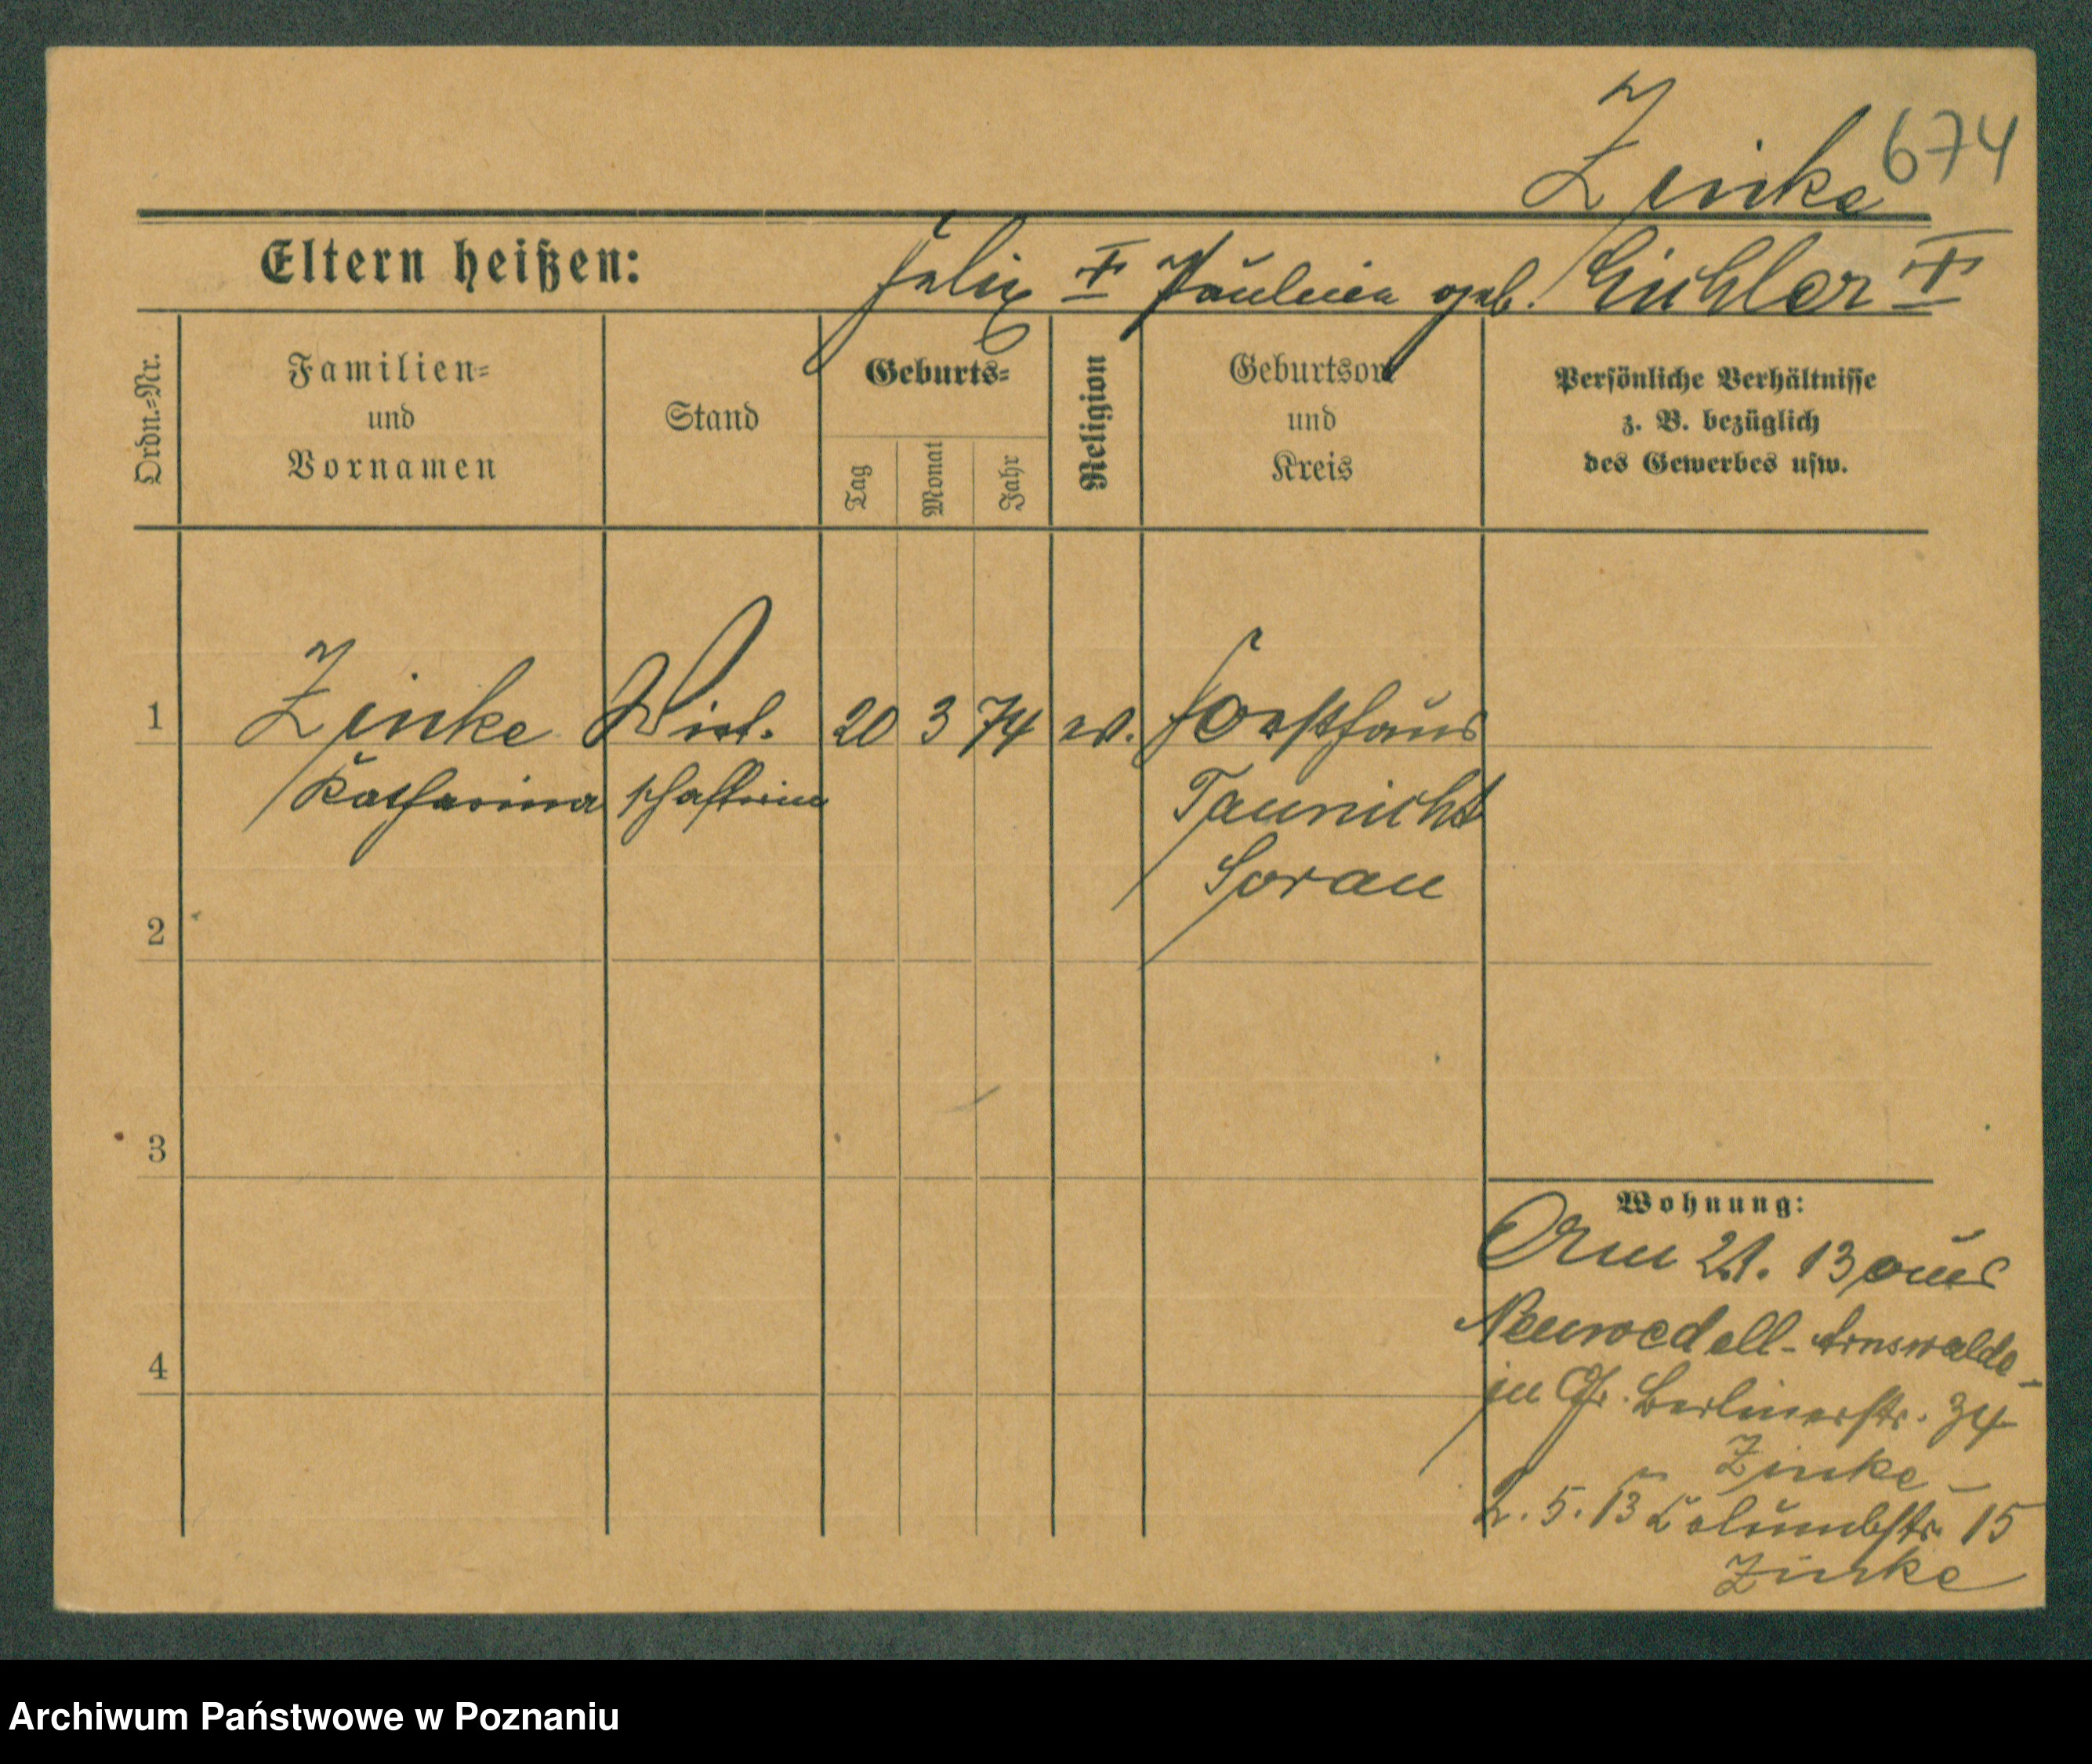 674
Zinke
Eltern heißen: Felix † Pauline geb. Eichler †
Ordn.=Nr.
Familien=
und
Vornamen
Stand
Geburts=
Tag
Monat
Jahr
Religion
Geburtsort
und
Kreis
Persönliche Verhältnisse
z. B. bezüglich
des Gewerbes usw.
1 Zinke Wirt. 20 3 74 ev. Forsthaus
Katharina schafterin Taunicht
Sorau
2
3
4
Wohnung:
21. 13 aus
Neuwedell - Arnswalde -
zu Berlinerstr. 34
Zinke -
2. 5. 13 Columbstr. 15
Zinke
Archiwum Państwowe w Poznaniu